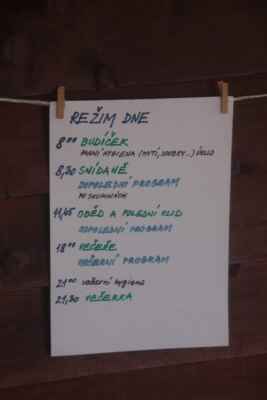 REŽIM DNE
8⁰⁰ BUDÍČEK
RANNÍ HYGIENA (MYTÍ, ZOUBKY..) ÚKLID
8,30 SNÍDANĚ
DOPOLEDNÍ PROGRAM
PO SKUPINÁCH
11,45 OBĚD A POLEDNÍ KLID
ODPOLEDNÍ PROGRAM
18⁰⁰ VEČEŘE
VEČERNÍ PROGRAM
21⁰⁰ večerní hygiena
21,30 VEČERKA